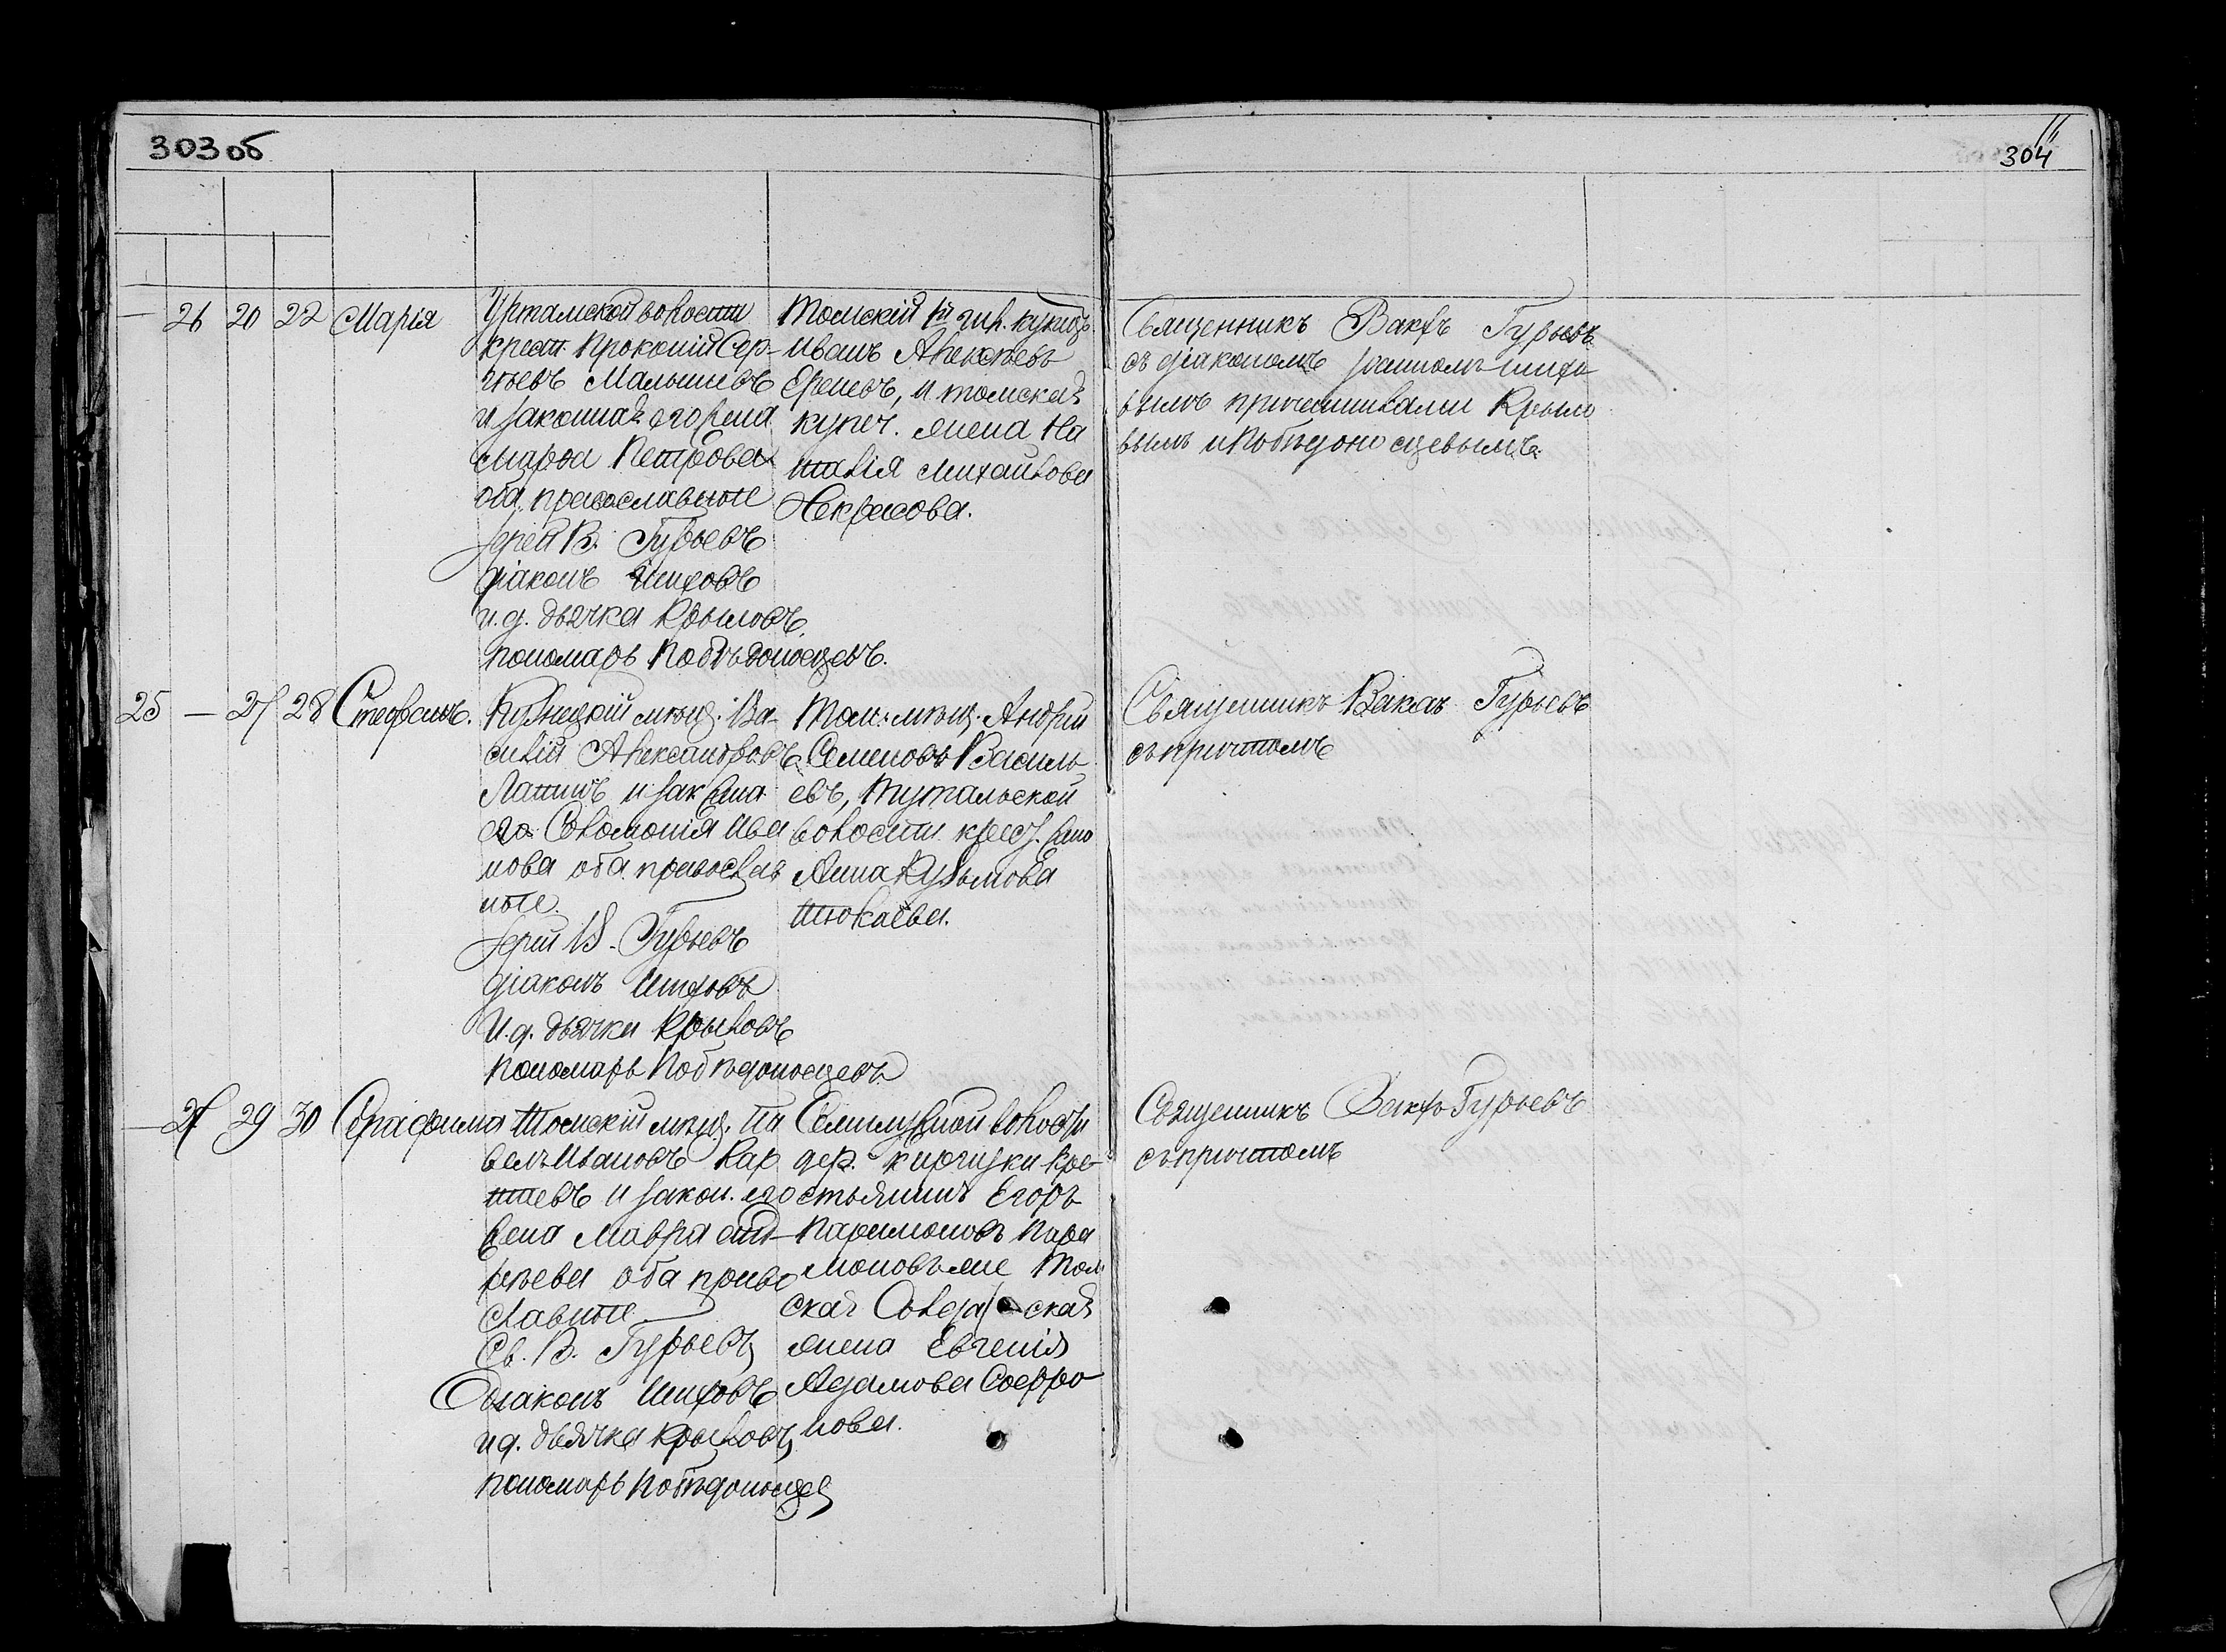 303 об
304
— 26 20 22 Марія
Уртамской волости
крест. Прокопій Сер-
гѣевъ Малышевъ
и законная его жена
Марѳа Петрова
оба православные
Іерей В. Гурьевъ
Діаконъ
и. д. дьячка Крыловъ
Пономарь Побѣдоносцевъ.
Томскій гил. купецъ
Иванъ Алексѣевъ
Ереневъ, и томская
купеч. жена На
талія Михайлова
Некрасова.
Священникъ Вакхъ Гурьевъ
съ діакономъ
вымъ причетниками Крыло
вымъ и Побѣдоносцевымъ.
25 — 27 28 Стефанъ.
Кузнецкій мѣщ. Ва
силій Александровъ
Лапинъ и зак. жена
его Соломонія Ива
нова оба православ
ные.
Іерей В. Гурьевъ
діаконъ
И. д. дьячка Крыловъ
Пономарь Побѣдоносцевъ
Том. мѣщ. Андрей
Семеновъ Василь
евъ, Тутальской
волости крест. жена
Анна Кузьмова
Тюкаева.
Священникъ Вакхъ Гурьевъ
съ причтомъ
— 27 29 30 Серафима
Томскій мѣщ. Па
велъ Ивановъ Кар
и закон. его
жена Мавра Анд
рѣева оба право
славные
Св. В. Гурьевъ
Діаконъ
и д. дьячка Крыловъ
пономарь Побѣдоносцев
Семилужной волости
дер. Киргизки кре-
стьянинъ Егоръ
Парамоновъ Пара
моновъ же Том
ская Солдатская
жена Евгенія
Адамова Софро
нова.
Священникъ Вакхъ Гурьевъ
съ причтомъ